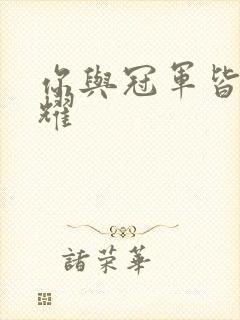 你與冠軍皆
耀
諸榮華